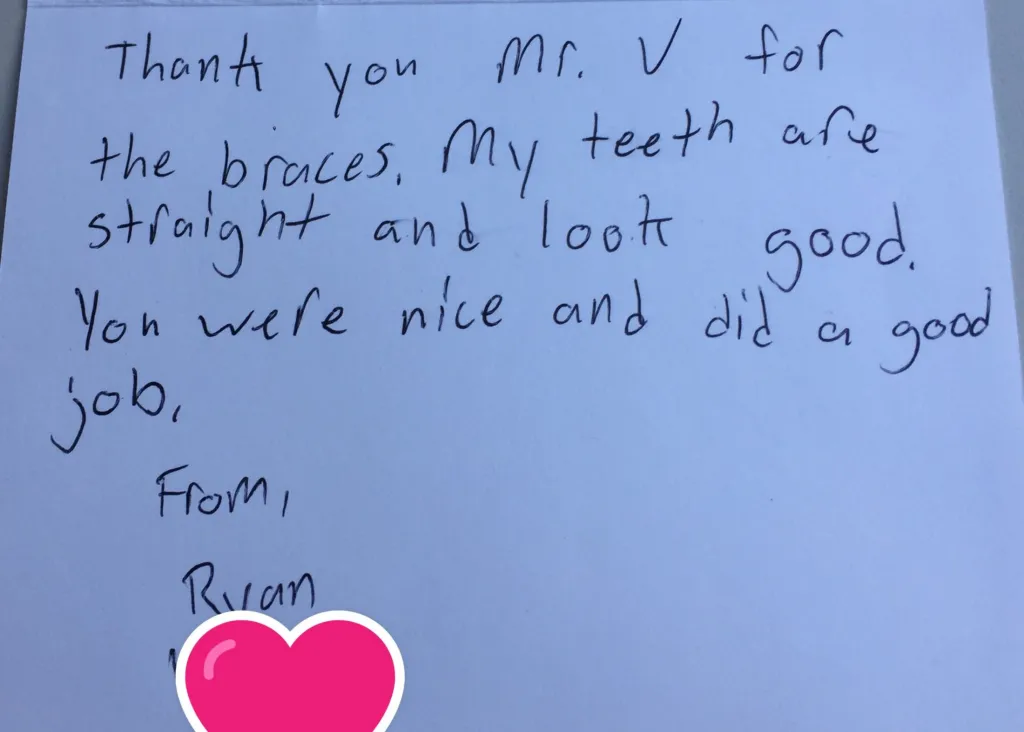 Thank you Mr. V for
the braces. My teeth are
straight and look good.
You were nice and did a good
job.
From,
Ryan